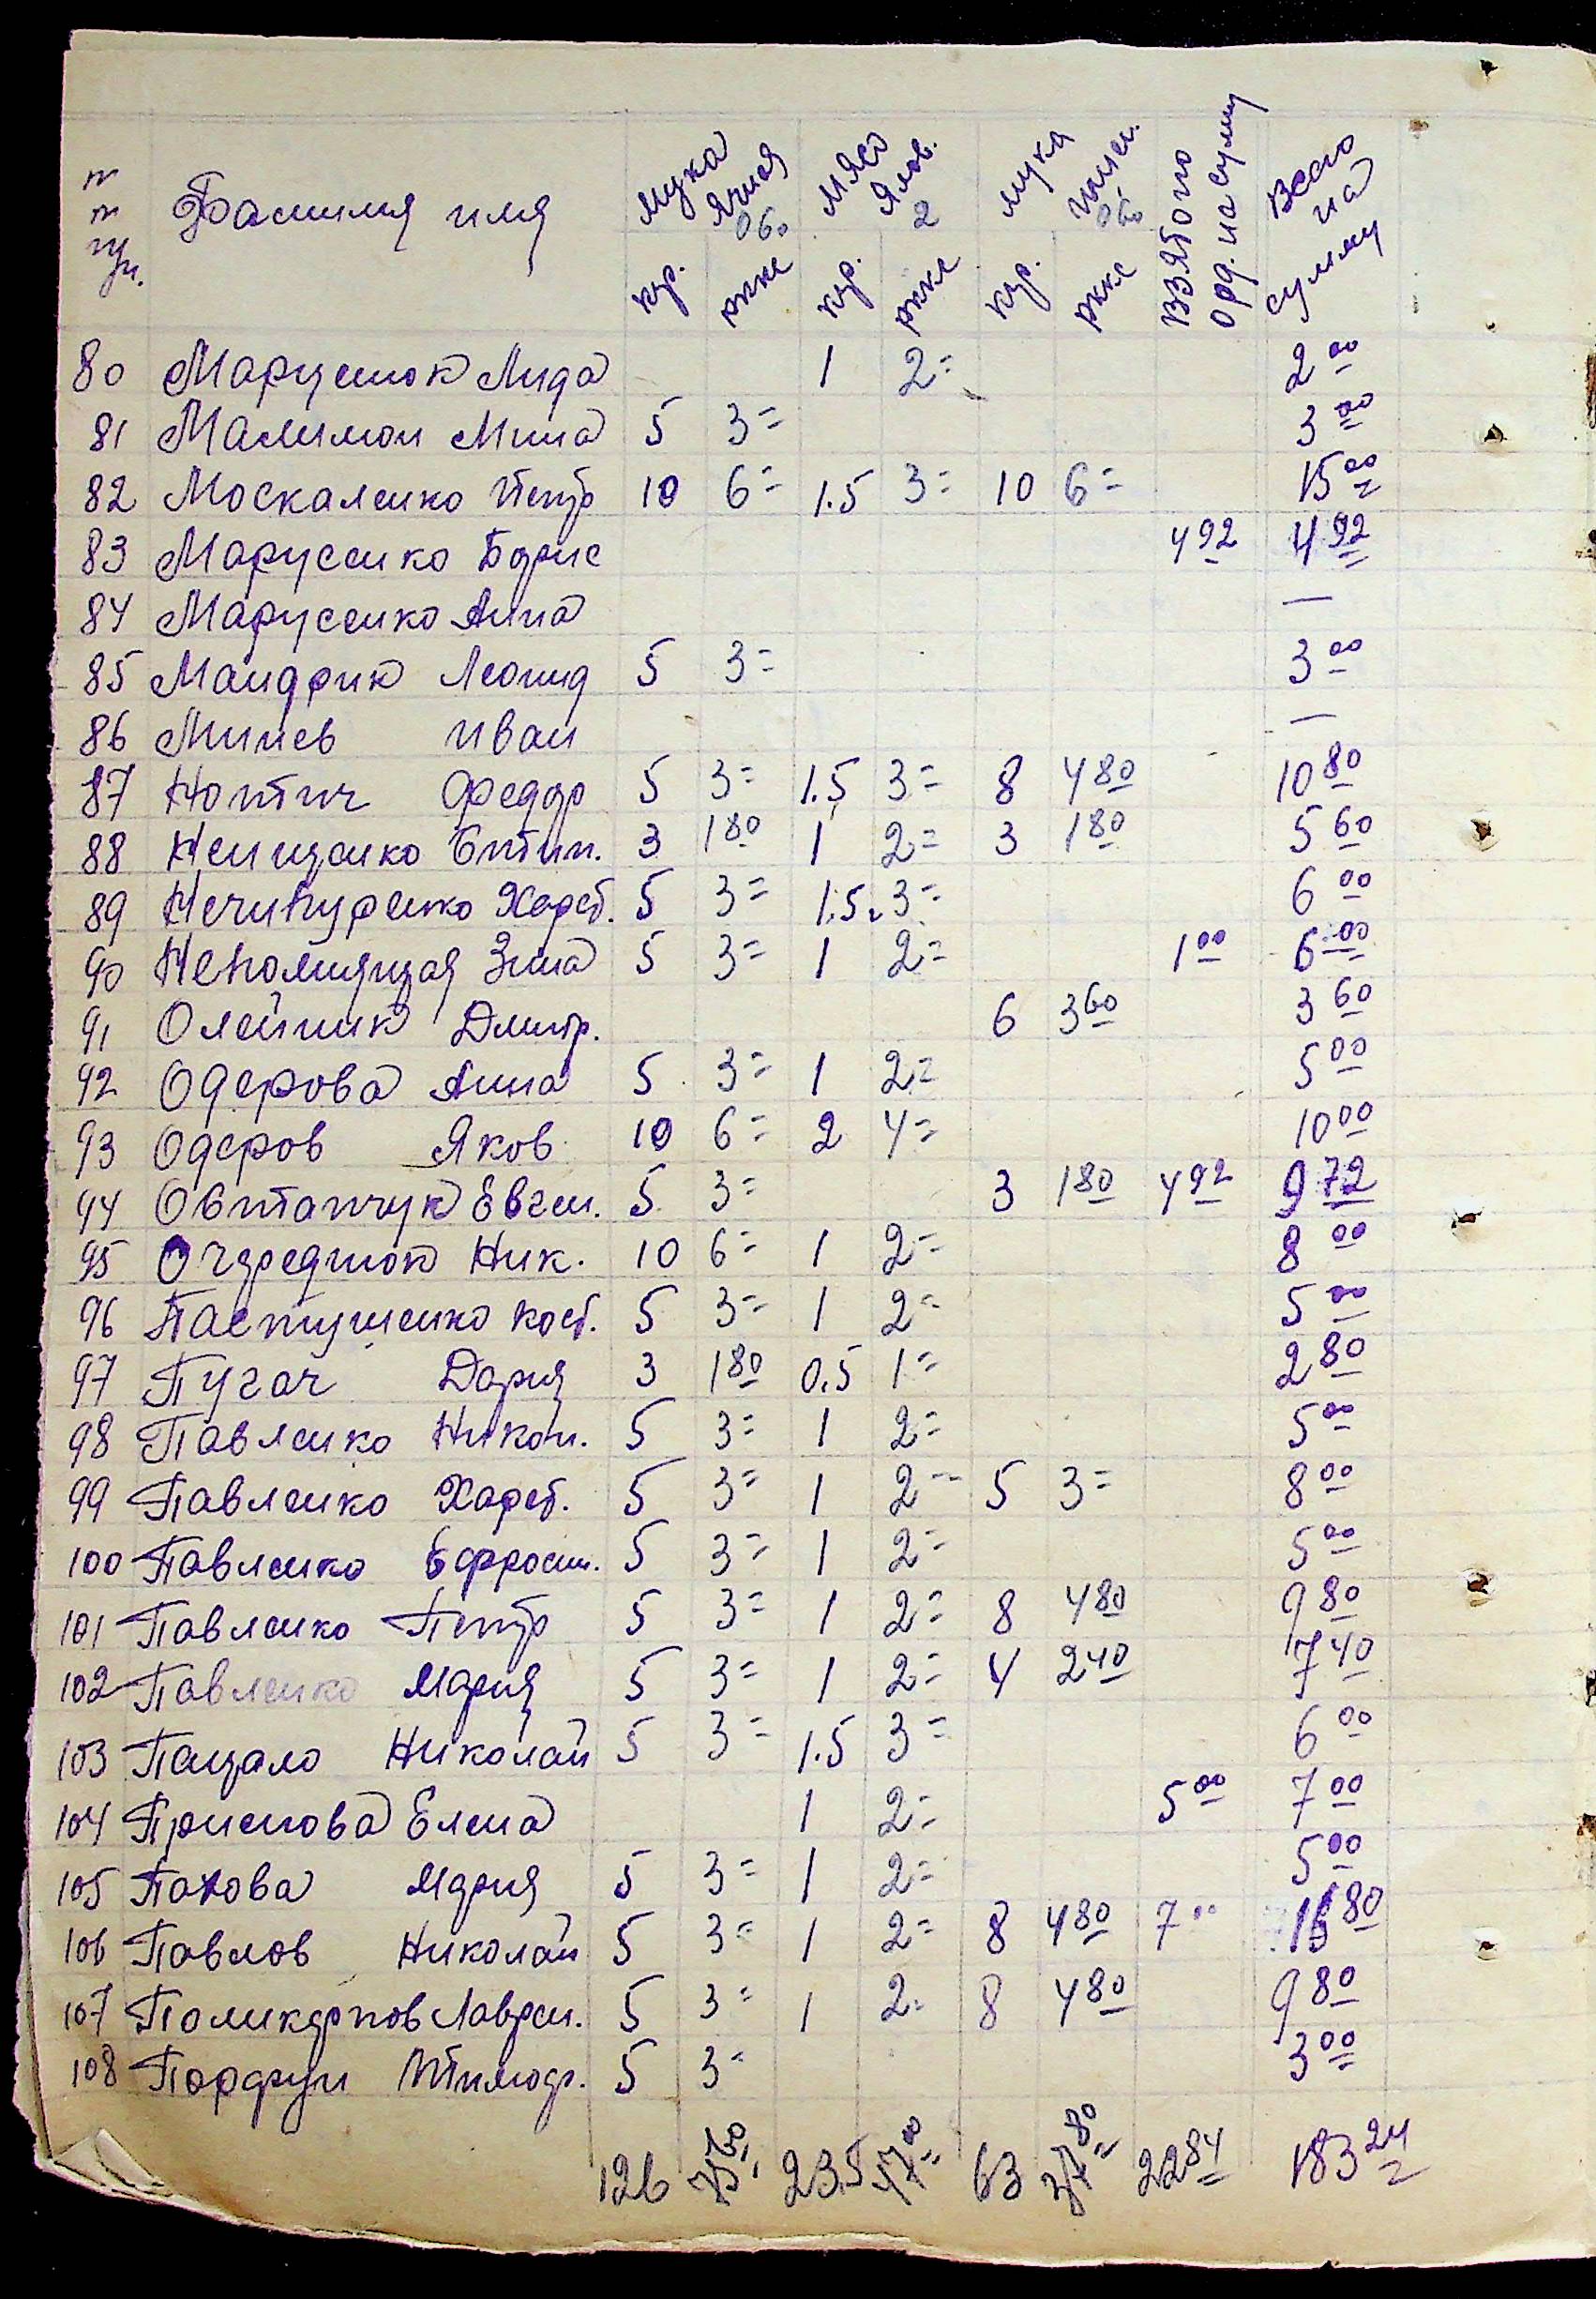 п п пп. Фамилия имя мука ячная 0 60 мясо Ялов. 2 мука пшен. 0 60 Взято по орд. на сумму Всего на сумму
кгр. ркк кгр. ркк кгр. ркк
80 Марушок Лида 1 2= 2 00
81 Малимон Мина 5 3= 3 00
82 Москаленко Петр 10 6= 1.5 3= 10 6= 15 00
83 Марусенко Борис 4 92 4 92
84 Марусенко Анна —
85 Мандрик Леонид 5 3= 3 00
86 Минев Иван —
87 Ноптич Федор 5 3= 1.5 3= 8 4 80 10 80
88 Ненщенко 3 1 80 1 2= 3 1 80 5 60
89 Нечипуренко Харет. 5 3= 1.5 3= 6 00
90 Непомнящая Зина 5 3= 1 2= 1 00 6 00
91 Олейник Дмитр. 6 3 60 3 60
92 Одерова Анна 5 3= 1 2= 5 00
93 Одеров Яков 10 6= 2 4= 10 00
94 Овтапчук Евген. 5 3= 3 1 80 4 92 9 72
95 Очереднюк Ник. 10 6= 1 2= 8 00
96 Пастушенко Кост. 5 3= 1 2= 5 00
97 Пугач Дария 3 1 80 0.5 1= 2 80
98 Павленко Никон. 5 3= 1 2= 5 00
99 Павленко Харет. 5 3= 1 2= 5 3= 8 00
100 Павленко Ефросин. 5 3= 1 2= 5 00
101 Павленко Петр 5 3= 1 2= 8 4 80 9 80
102 Павленко Мария 5 3= 1 2= 4 2 40 7 40
103 Пацало Николай 5 3= 1.5 3= 6 00
104 Приснова Елена 1 2= 5 00 7 00
105 Пахова Мария 5 3= 1 2= 5 00
106 Павлов Николай 5 3= 1 2= 8 4 80 7 00 16 80
107 Поликарпов Лаврен. 5 3= 1 2= 8 4 80 9 80
108 Порфун 5 3= 3 00
126 75 60 23.5 47 00 63 37 80 22 84 183 24